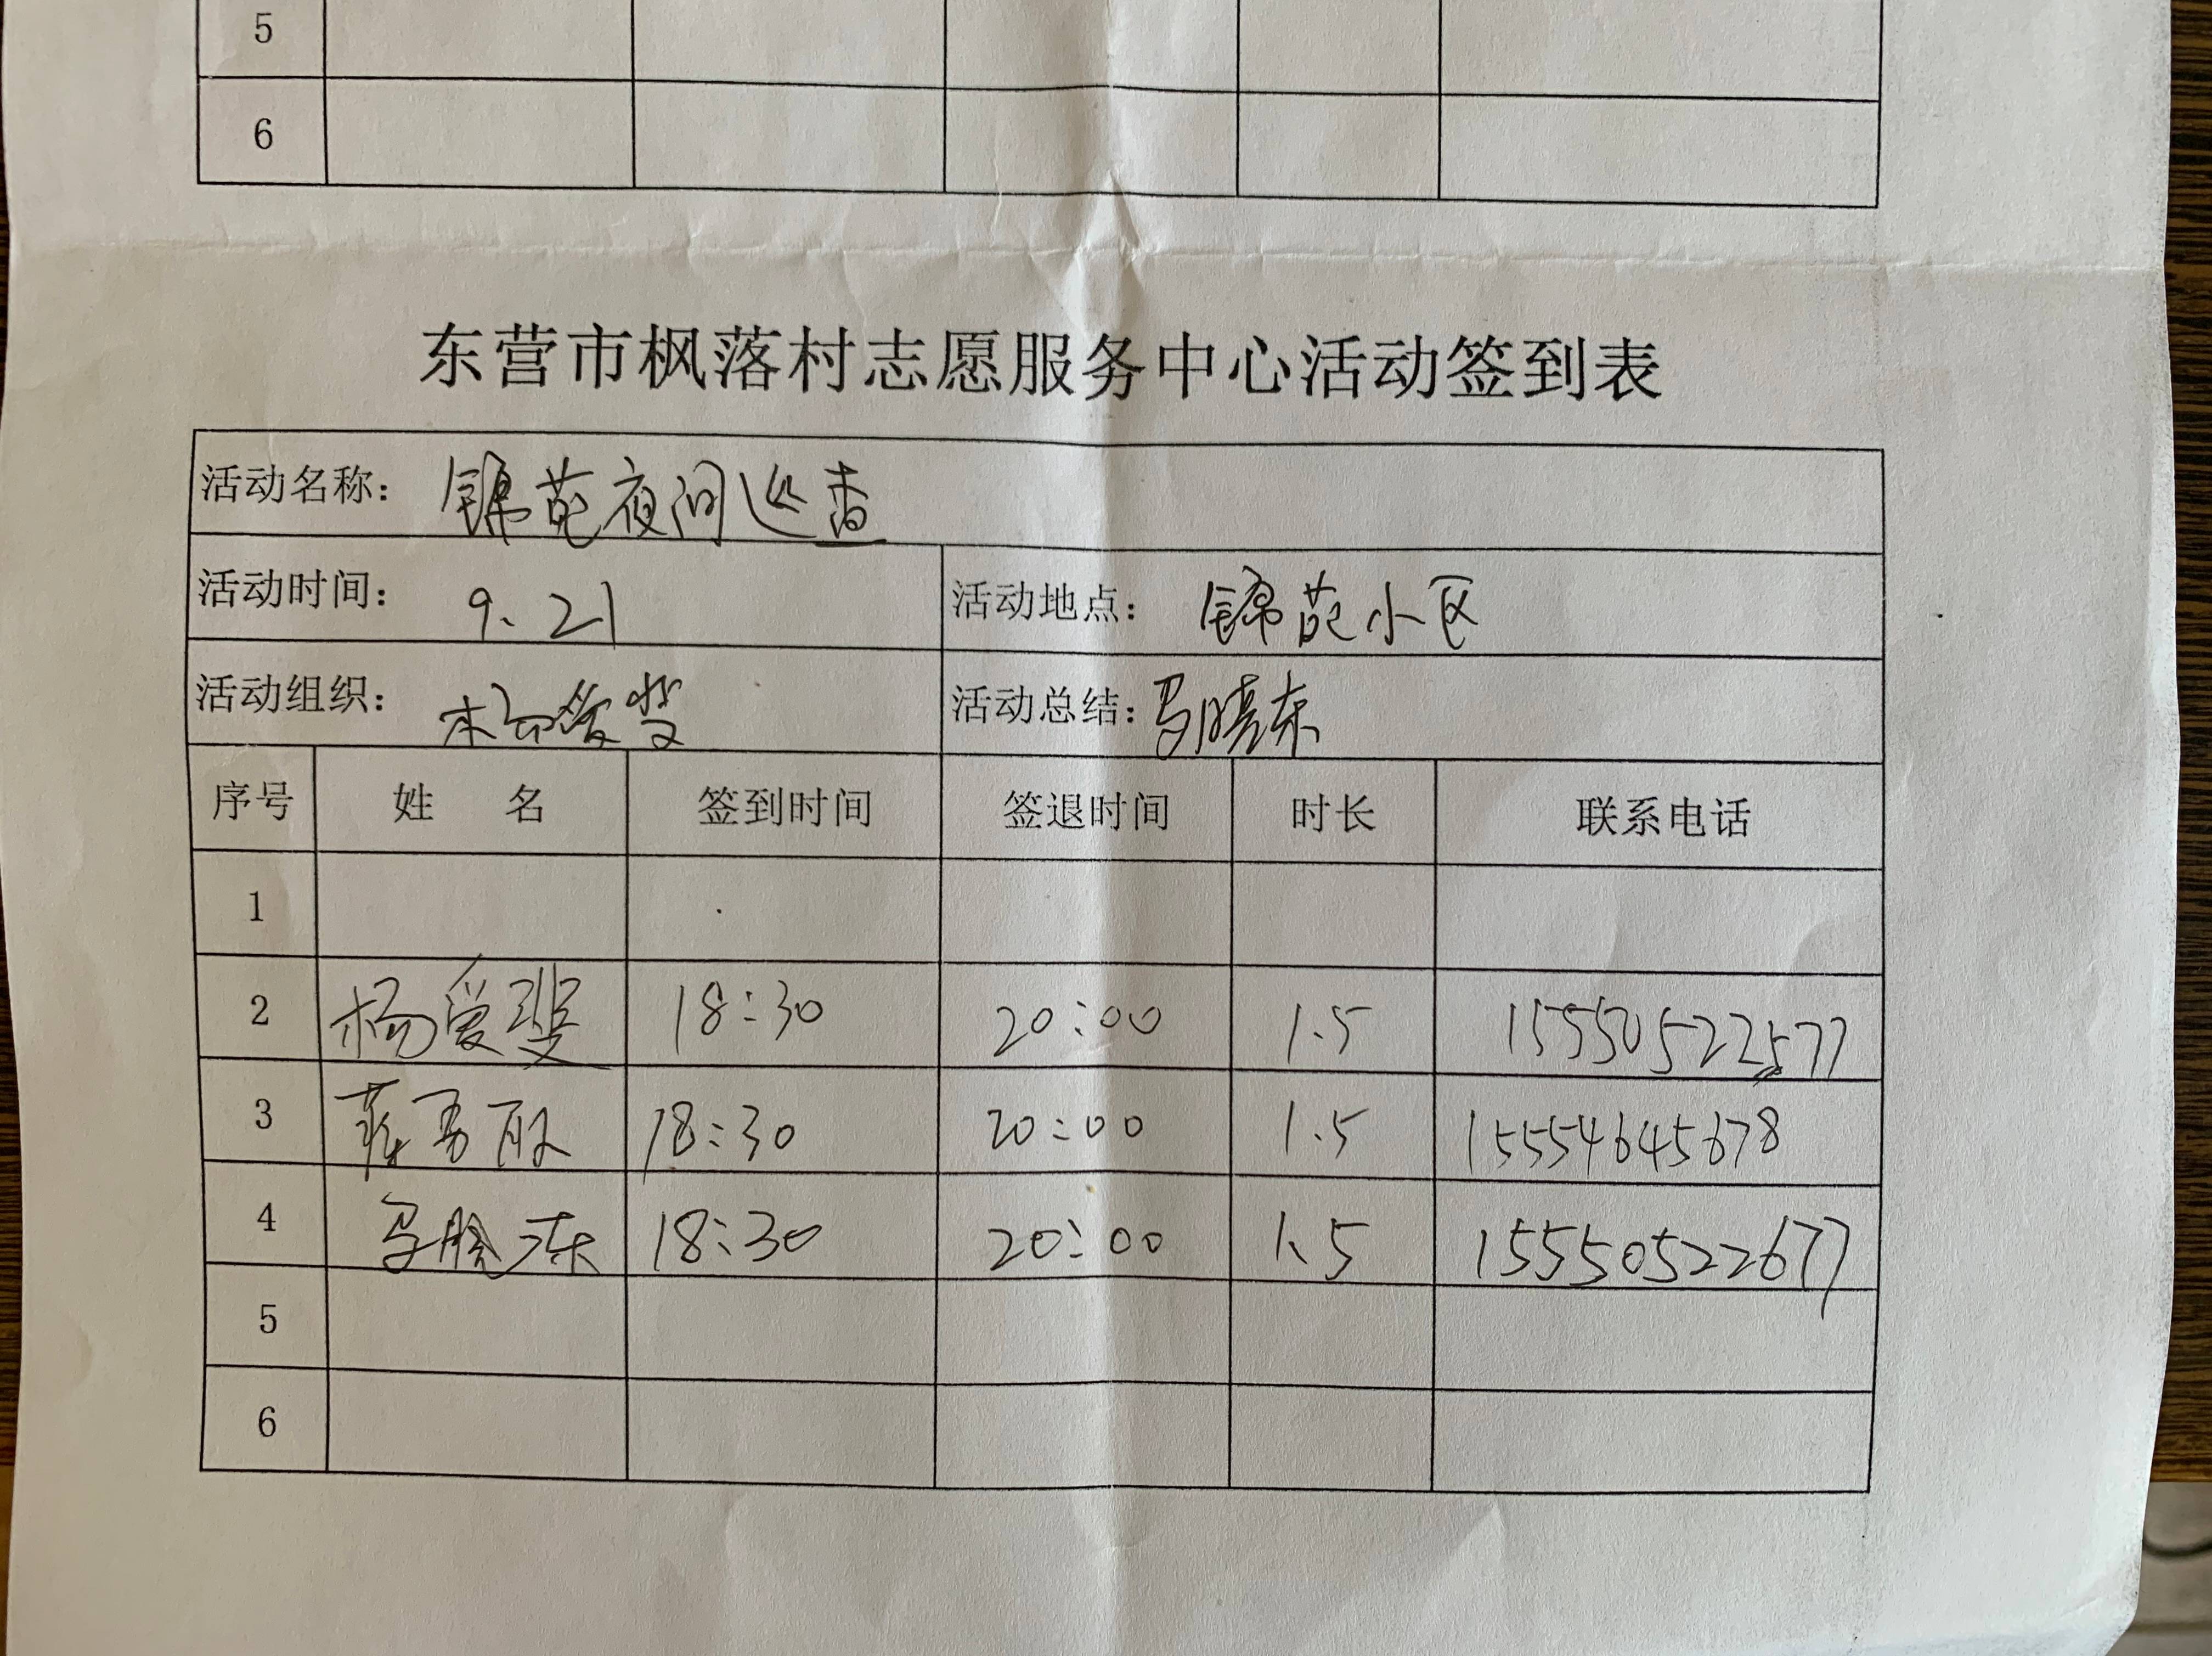 5
6
东营市枫落村志愿服务中心活动签到表
活动名称: 锦苑夜间巡查
活动时间: 9、21 活动地点: 锦苑小区
活动组织: 杨爱斐 活动总结: 马晓东
序号 姓 名 签到时间 签退时间 时长 联系电话
1
2 杨爱斐 18:30 20:00 1.5 15550522577
3 18:30 20:00 1.5 15554645678
4 马晓东 18:30 20:00 1、5 15550522677
5
6